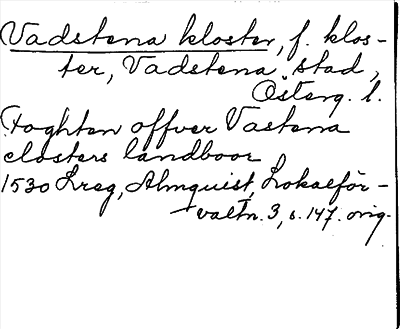 Vadstena kloster, f. klos-
ter, Vadstena stad,
Österg. l.
Foghten offver Vastena
closters landboor
1530 Greg, Almquist, Lokalför-
valtn. 3, s. 147. orig.